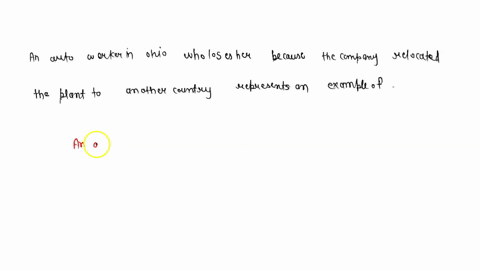 An auto worker in ohio who loses her because the company relocated
the plant to another country represents an example of.
An a